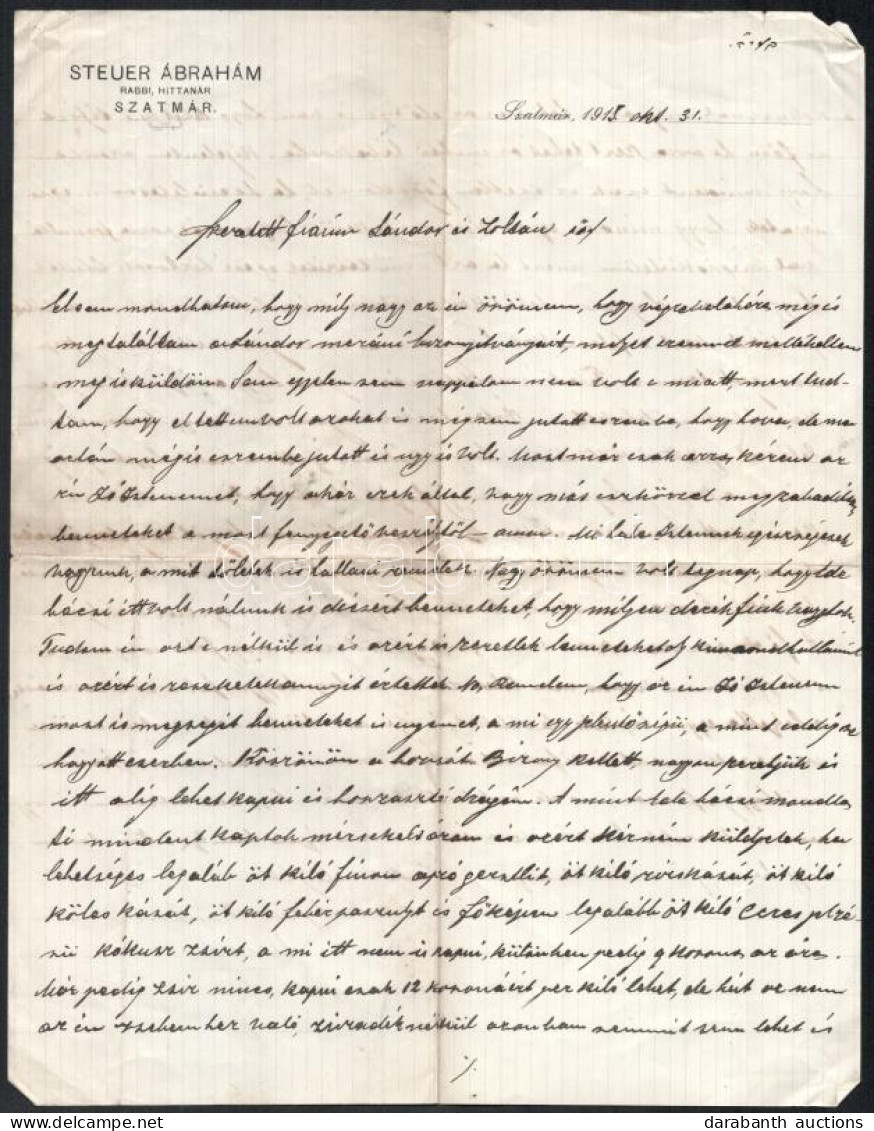 STEUER ÁBRAHÁM
RABBI, HITTANÁR
SZATMÁR.
Szatmár, 1915 okt. 31.
Szeretett fiaim Sándor és Zoltán
El sem mondhatom, hogy mily nagy az én örömem, hogy végre mégis
megtaláltam a Sándor meráni bizonyítványait, melyet ezennel mellékelten
meg is küldöm. Sem éjjelem sem nappalom nem volt e miatt, mert tud-
tam, hogy eltettem volt azokat és mégsem jutott eszembe, hogy hova, de ma
aztán mégis eszembe jutott és ugy is volt. Most már csak arra kérem az
én Jó Istenemet, hogy akár ezek által, vagy más eszközzel megszabadítson
benneteket a most fenyegető veszélytől – amen. Mi hála Istennek egészségesek
vagyunk, a mit tőletek is hallani remélek. Nagy örömem volt tegnap, hogy Ede
bácsi itt volt nálunk és dicsért benneteket, hogy milyen derék fiuk vagytok.
Tudom én azt e nélkül is és azért is szeretlek benneteket oly kimondhatatlanul
és azért is reszketek annyit értetek. No, remélem, hogy az én Jó Istenem
most is megsegít benneteket is ugemet, a mi egy , a mint eddig se
hagyott cserben. Köszönöm a Bizony kellett, nagyon és
itt alig lehet kapni és horrasztó drágán. A mint Ede bácsi mondta
ti mindent kaptok mérsékelt áron és azért kérném küldjetek, ha
lehetséges legalább öt kiló finom apró gerslit, öt kiló kását, öt kiló
köles kását, öt kiló fehér paszulyt és főképen legalább öt kiló Ceres
kókusz zsírt, a mi itt nem is kapni, különben pedig 9 korona az ára.
Már pedig zsir nincs, kapni csak 12 koronáért per kiló lehet, de hát az nem
az én zsebemhez való, zsiradék nélkül azonban semmit sem lehet és
./.
darabanth
© darabanth auctions